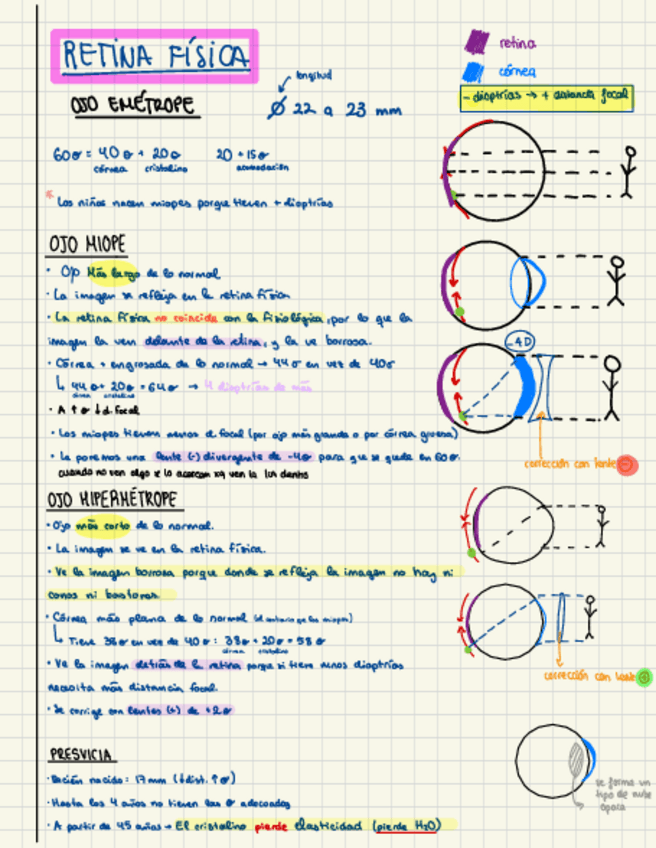 RETINA FÍSICA
retina
córnea
- dioptrías → + distancia focal
OJO EMÉTROPE
longitud
Ø 22 a 23 mm
60σ = 40σ + 20σ
córnea cristalino
20 + 15σ
acomodación
* Los niños nacen miopes porque tienen + dioptrías
OJO MIOPE
· Ojo más largo de lo normal
· La imagen se refleja en la retina física
· La retina física no coincide con la fisiológica, por lo que la
imagen la ven delante de la retina, y la ve borrosa.
· Córnea + engrosada de lo normal → 44σ en vez de 40σ
↳ 44σ + 20σ = 64σ → 4 dioptrías de más
córnea cristalino
· A ↑σ ↓d. focal
· Los miopes tienen menos d. focal (por ojo más grande o por córnea gruesa)
· Le ponemos una lente (-) divergente de -4σ para que se quede en 60σ.
cuando no ven algo se lo acercan xq ven la luz dentro
-4D
corrección con lente -
OJO HIPERMÉTROPE
· Ojo más corto de lo normal.
· La imagen se ve en la retina física.
· Ve la imagen borrosa porque donde se refleja la imagen no hay ni
conos ni bastones.
· Córnea más plana de lo normal (al contrario que los miopes)
↳ Tiene 38σ en vez de 40σ : 38σ + 20σ = 58σ
córnea cristalino
· Ve la imagen detrás de la retina porque si tiene menos dioptrías
necesita más distancia focal.
· Se corrige con lentes (+) de +2σ
corrección con lente +
PRESVICIA
· Recién nacido: 17 mm (↓dist. ↑σ)
· Hasta los 4 años no tienen las σ adecuadas
· A partir de 45 años → El cristalino pierde elasticidad (pierde H₂O)
se forma un
tipo de nube
opaca